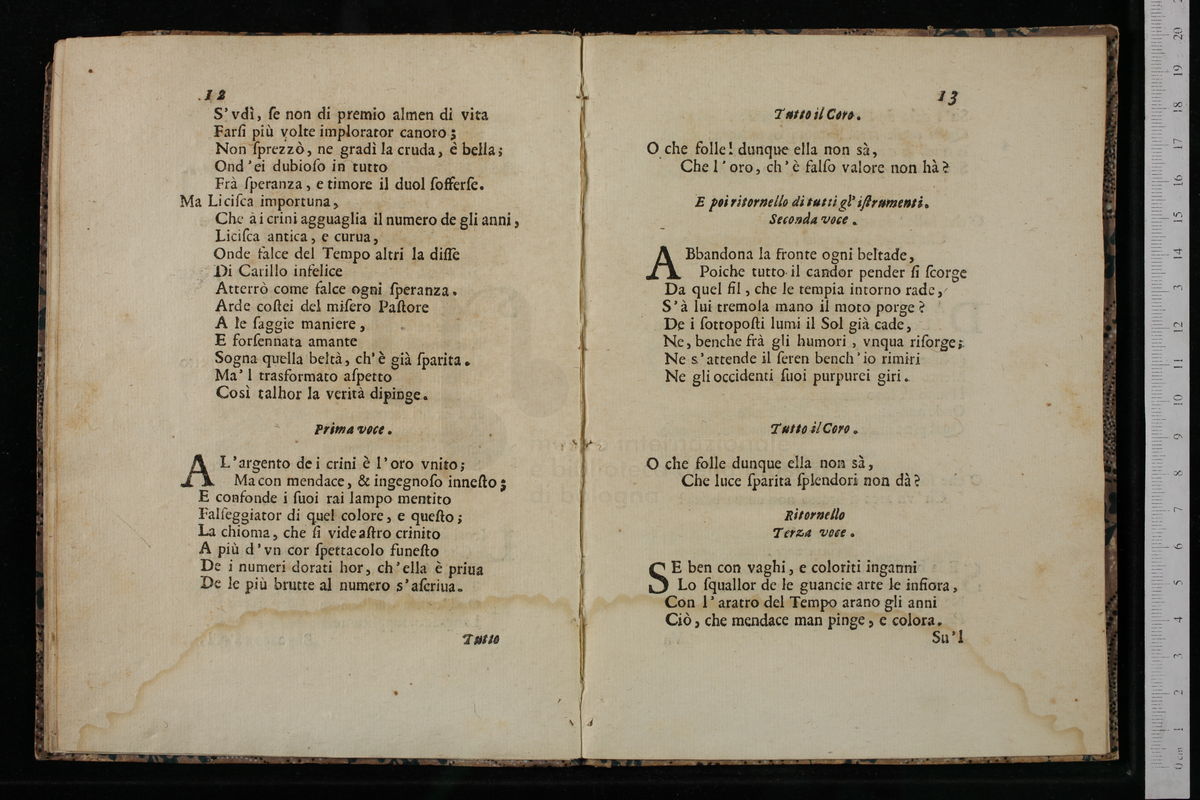 12
S'vdì, ſe non di premio almen di vita
Farſi più volte implorator canoro;
Non ſprezzò, ne gradì la cruda, è bella;
Ond'ei dubioſo in tutto
Frà ſperanza, e timore il duol ſofferſe.
Ma Liciſca importuna,
Che à i crini agguaglia il numero de gli anni,
Liciſca antica, e curua,
Onde falce del Tempo altri la diſſe
Di Carillo infelice
Atterrò come falce ogni ſperanza.
Arde coſtei del miſero Paſtore
A le ſaggie maniere,
E forſennata amante
Sogna quella beltà, ch'è già ſparita.
Ma'l trasformato aſpetto
Così talhor la verità dipinge.
Prima voce.
AL'argento de i crini è l'oro vnito;
Ma con mendace, & ingegnoſo inneſto;
E confonde i ſuoi rai lampo mentito
Falſeggiator di quel colore, e queſto;
La chioma, che ſi vide aſtro crinito
A più d'vn cor ſpettacolo funeſto
De i numeri dorati hor, ch'ella è priua
De le più brutte al numero s'aſcriua.
Tutto
13
Tutto il Coro.
O che folle! dunque ella non sà,
Che l'oro, ch'è falſo valore non hà?
E poi ritornello di tutti gl'iſtrumenti.
Seconda voce.
ABbandona la fronte ogni beltade,
Poiche tutto il candor pender ſi ſcorge
Da quel fil, che le tempia intorno rade,
S'à lui tremola mano il moto porge?
De i ſottopoſti lumi il Sol già cade,
Ne, benche frà gli humori, vnqua riſorge;
Ne s'attende il ſeren bench'io rimiri
Ne gli occidenti ſuoi purpurei giri.
Tutto il Coro.
O che folle dunque ella non sà,
Che luce ſparita ſplendori non dà?
Ritornello
Terza voce.
SE ben con vaghi, e coloriti inganni
Lo ſquallor de le guancie arte le infiora,
Con l'aratro del Tempo arano gli anni
Ciò, che mendace man pinge, e colora.
Su'l
0 cm 1 2 3 4 5 6 7 8 9 10 11 12 13 14 15 16 17 18 19 20